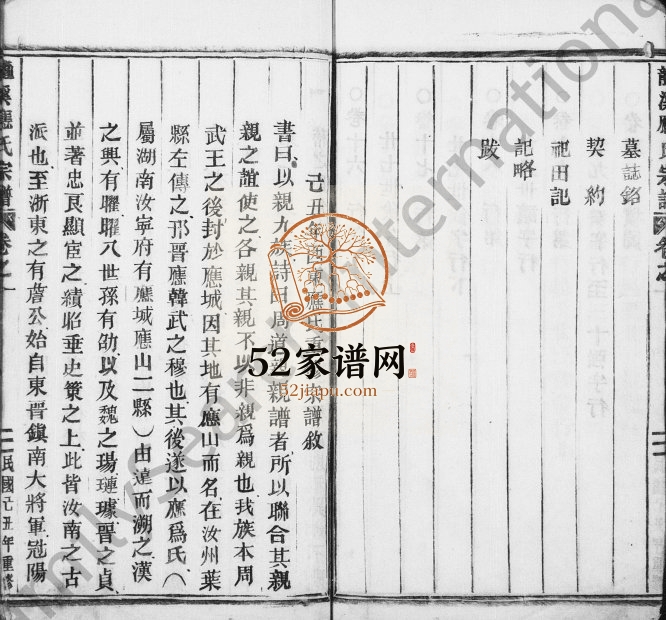 墓誌銘
契約
祀田記
記略
跋
己丑年 東應氏重 宗譜敘
書曰以親九族詩曰周道親親譜者所以聯合其親
親之誼使之各親其親不以非親爲親也我族本周
武王之後封於應城因其地有應山而名在汝州葉
縣左傳之邘晋應韓武之穆也其後遂以應爲氏（
屬湖南汝寧府有應城應山二縣）由是而溯之漢
之興有曜曜八世孫有劭以及魏之瑒璉璩晋之貞
並著忠良顯宦之績昭垂史策之上此皆汝南之古
派也至浙東之有詹公始自東晋鎮南大將軍冠陽
龍溪應氏宗譜
卷之
龍溪應氏宗譜 卷之一
二 民國己丑年重修
52家谱网
52jiapu.com
FamilySearch International